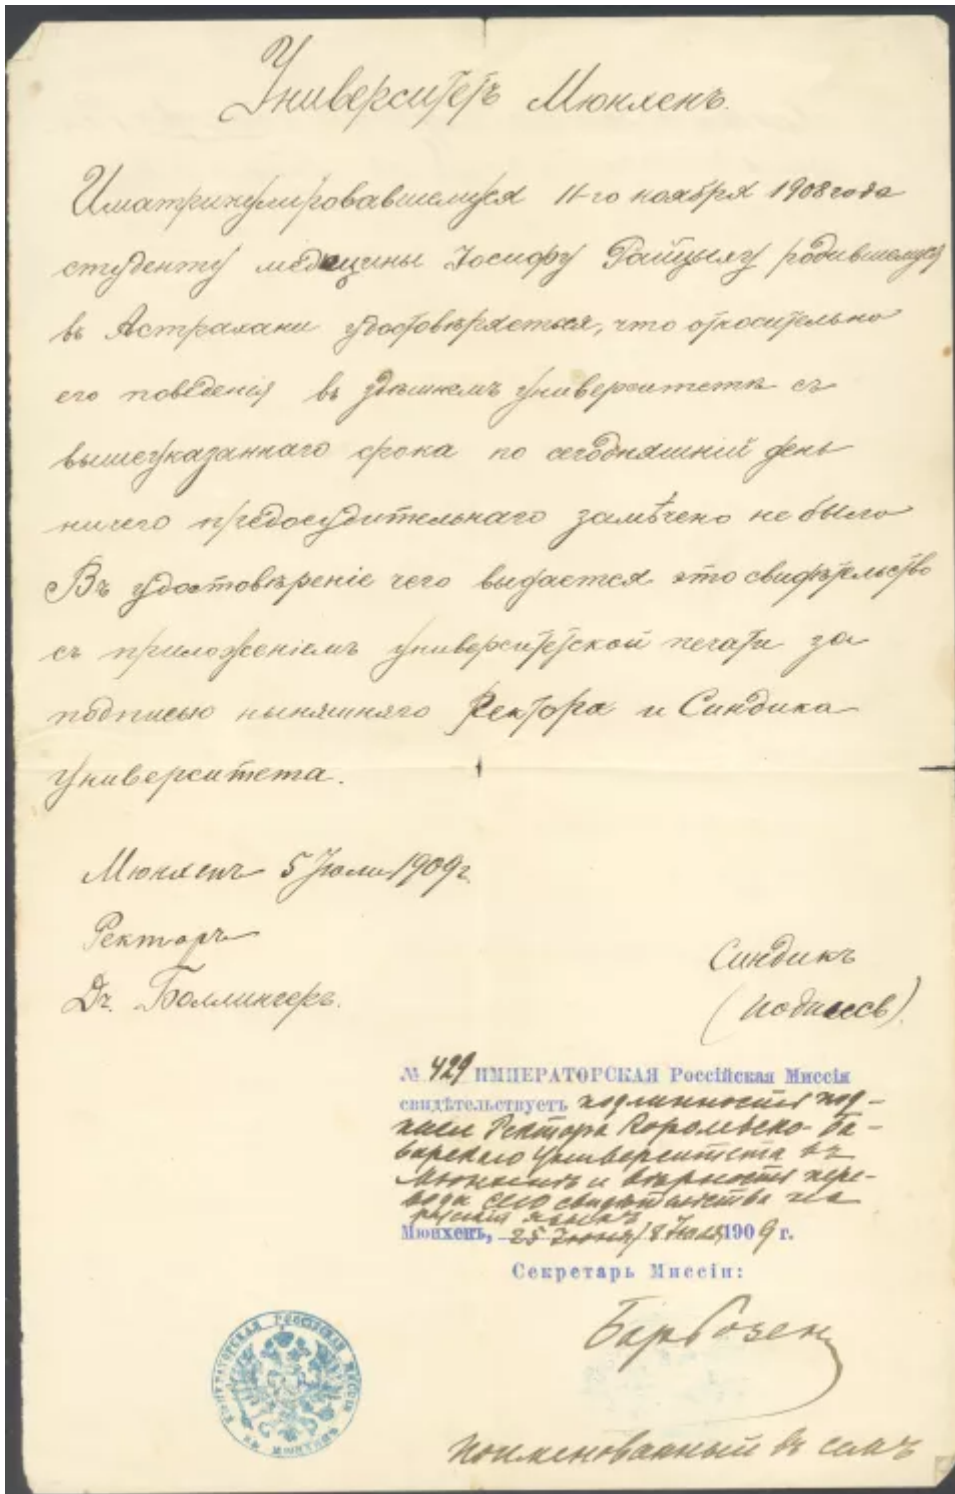 Университетъ Мюнхенъ.
Иматрикулировавшемуся 11-го ноября 1908 года
студенту медицины Іосифу родившемуся
въ Астрахани удостовѣряется, что относительно
его поведенія въ здѣшнемъ университетѣ съ
вышеуказаннаго срока по сегодняшній день
ничего предосудительнаго замѣчено не было
Въ удостовѣреніе чего выдается это свидѣтельство
съ приложеніемъ университетской печати за
подписью нынѣшняго Ректора и Синдика
университета.
Мюнхенъ 5 Іюли 1909 г.
Ректоръ
Др. Боллингеръ.
Синдикъ
(подпись).
№ 429 ИМПЕРАТОРСКАЯ Россійская Миссія
свидѣтельствуетъ подлинность под-
писи Ректора Королевско-Ба-
варскаго Университета въ
Мюнхенѣ и вѣрность пере-
вода сего свидѣтельства на
русскій языкъ
Мюнхенъ, 25 Іюня/8 Іюля 1909 г.
Секретарь Миссіи:
ИМПЕРАТОРСКАЯ РОССІЙСКАЯ МИССІЯ
ВЪ МЮНХЕНѢ
поименованный въ семъ